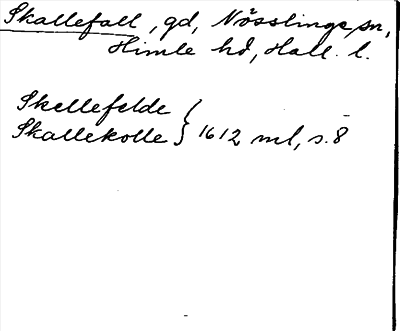 Skallefall, gd, Nösslinge sn,
Himle hd, Hall. l.
Skellefelde
Skallekolle } 1612 ml, s. 8